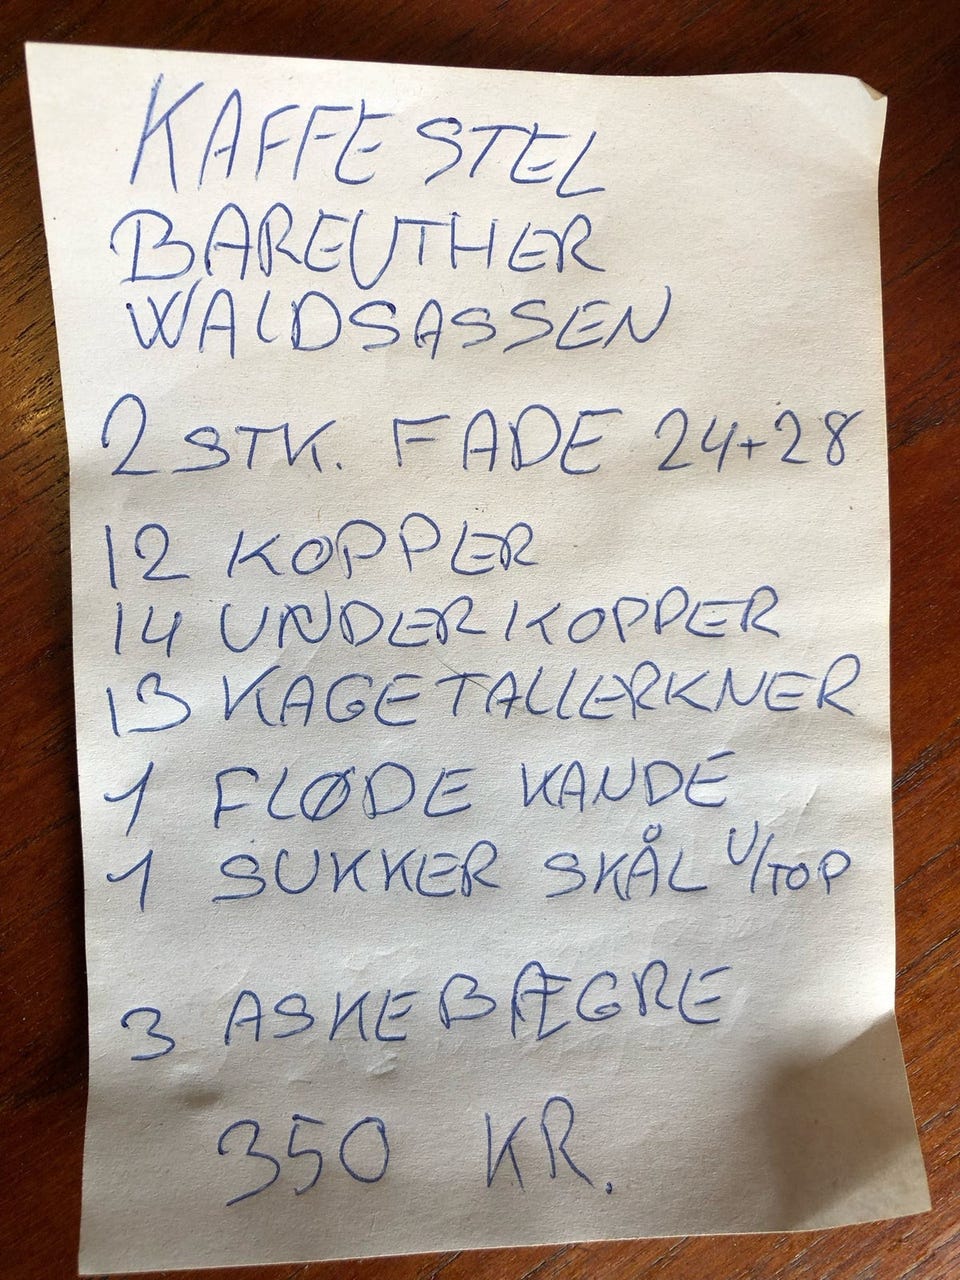 KAFFE STEL
BAREUTHER
WALDSASSEN
2 STK. FADE 24+28
12 KOPPER
14 UNDERKOPPER
13 KAGETALLERKNER
1 FLØDE KANDE
1 SUKKER SKÅL U/TOP
3 ASKEBÆGRE
350 KR.